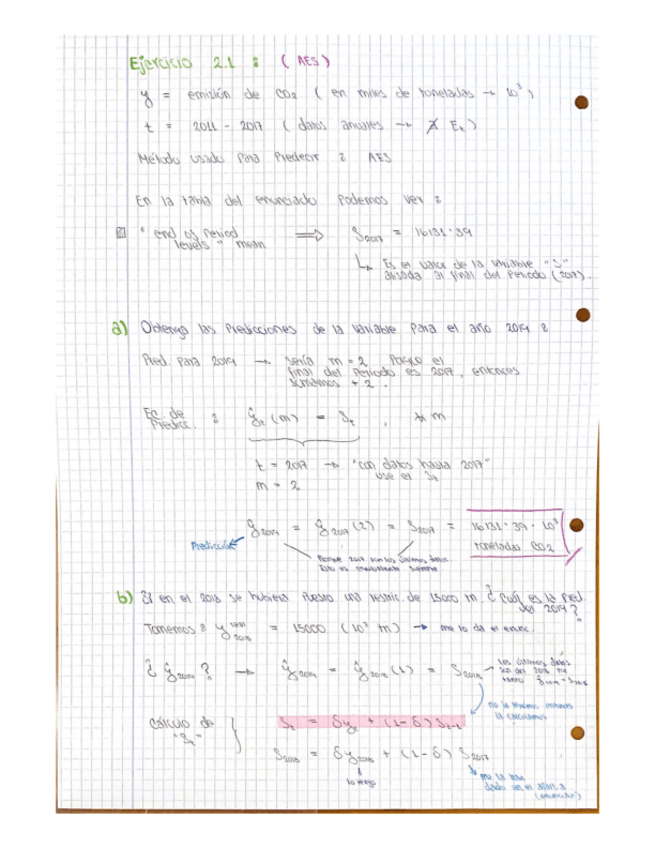 Ejercicio 2.1 : (AES)
y = emisión de CO2 (en miles de toneladas → 10³)
t = 2011 - 2017 (datos anuales → ∄ Et)
Método usado para Predecir : AES
En la tabla del enunciado podemos ver :
"end of Period levels" mean ⟹ S2017 = 16131'39
↳ Es el valor de la variable "S"
alisada al final del periodo (2017).
a) Obtenga las Predicciones de la variable para el año 2019 :
Pred. para 2019 → sería m = 2 Porque el
final del periodo es 2017, entonces
sumamos + 2.
Ec. de Predicc. : ŷt (m) = St , ∀ m
t = 2017 → "con datos hasta 2017"
use el St
m = 2
ŷ2019 = ŷ2017 (2) = S2017 = 16131'39 · 10³
toneladas CO2
Predicción
Porque 2017 son los últimos datos
b) Si en el 2018 se hubiera puesto una restric. de 15000 m. ¿ Cuál es la pred.
del 2019 ?
Tomemos : y2018 real = 15000 (10³ m) → me lo da el enunc.
¿ ŷ2019 ? → ŷ2019 = ŷ2018 (1) = S2018 → los últimos datos
son del 2018 por
no la tenemos, entonces
la calculamos
Cálculo de "St" } St = δyt + (1-δ) St-1
S2018 = δy2018 + (1-δ) S2017
lo tengo
me la han
dado en el
(enunciado)